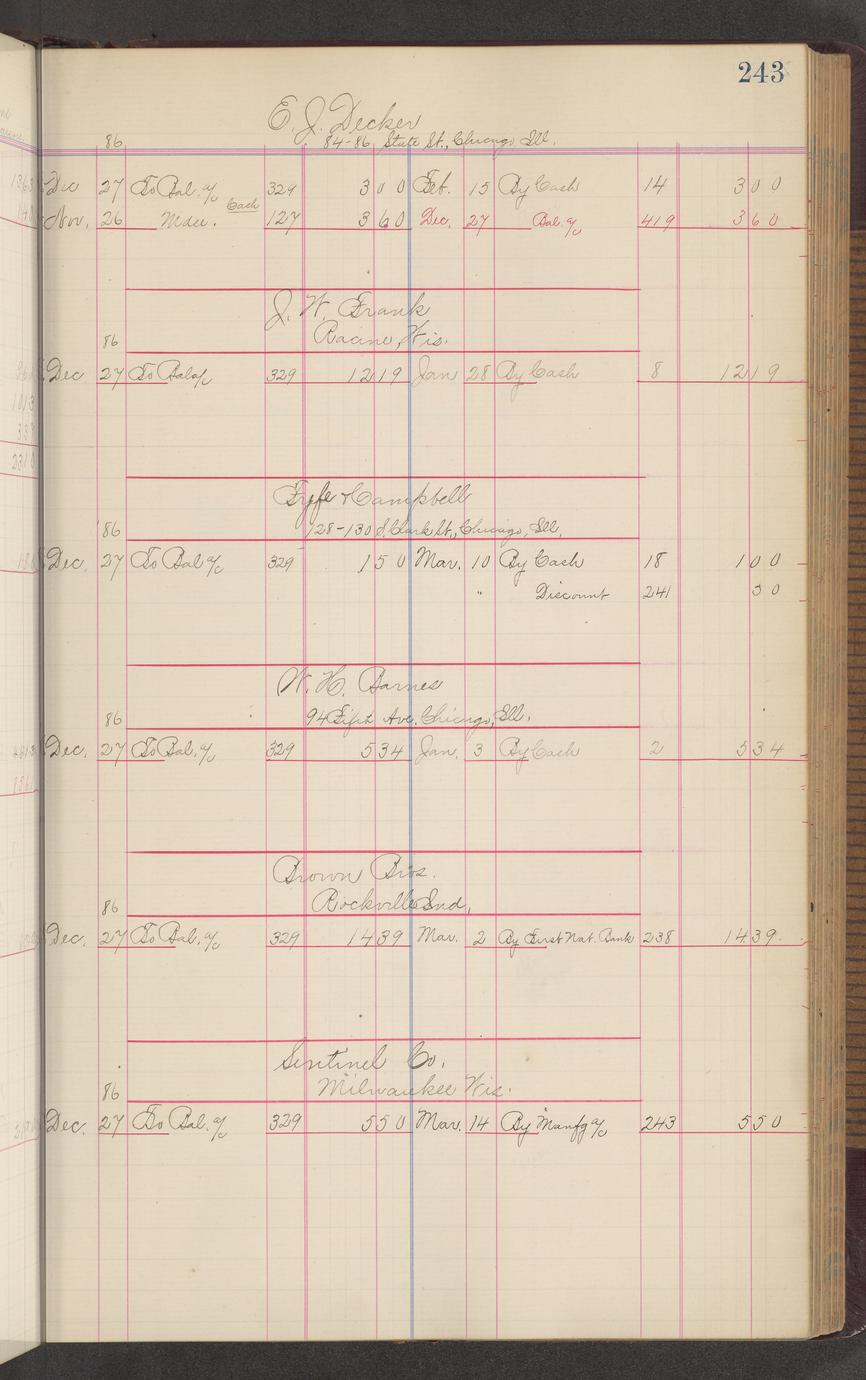 243
E. J. Decker
86 84-86 State St., Chicago, Ill.
Dec 27 To Bal. a/c 329 3 0 0 Feb. 15 By Cash 14 3 0 0
Cash
Nov. 26 Mdse. 127 3 6 0 Dec. 27 Bal. a/c 419 3 6 0
J. W. Frank
86 Racine, Wis.
Dec 27 To Bal a/c 329 12 19 Jan 28 By Cash 8 12 19
Fyfe & Campbell
'86 128-130 S. Clark St., Chicago, Ill.
Dec. 27 To Bal a/c 329 1 5 0 Mar. 10 By Cash 18 1 0 0
" Discount 241 5 0
W. H. Barnes
86 94 Fifth Ave. Chicago, Ill.
Dec. 27 To Bal. a/c 329 5 34 Jan. 3 By Cash 2 5 34
Brown Bros.
86 Rockville Ind.
Dec. 27 To Bal. a/c 329 14 39 Mar. 2 By First Nat. Bank 238 14 39
Sentinel Co.
86 Milwaukee Wis.
Dec. 27 To Bal. a/c 329 5 5 0 Mar. 14 By Manfg a/c 243 5 5 0